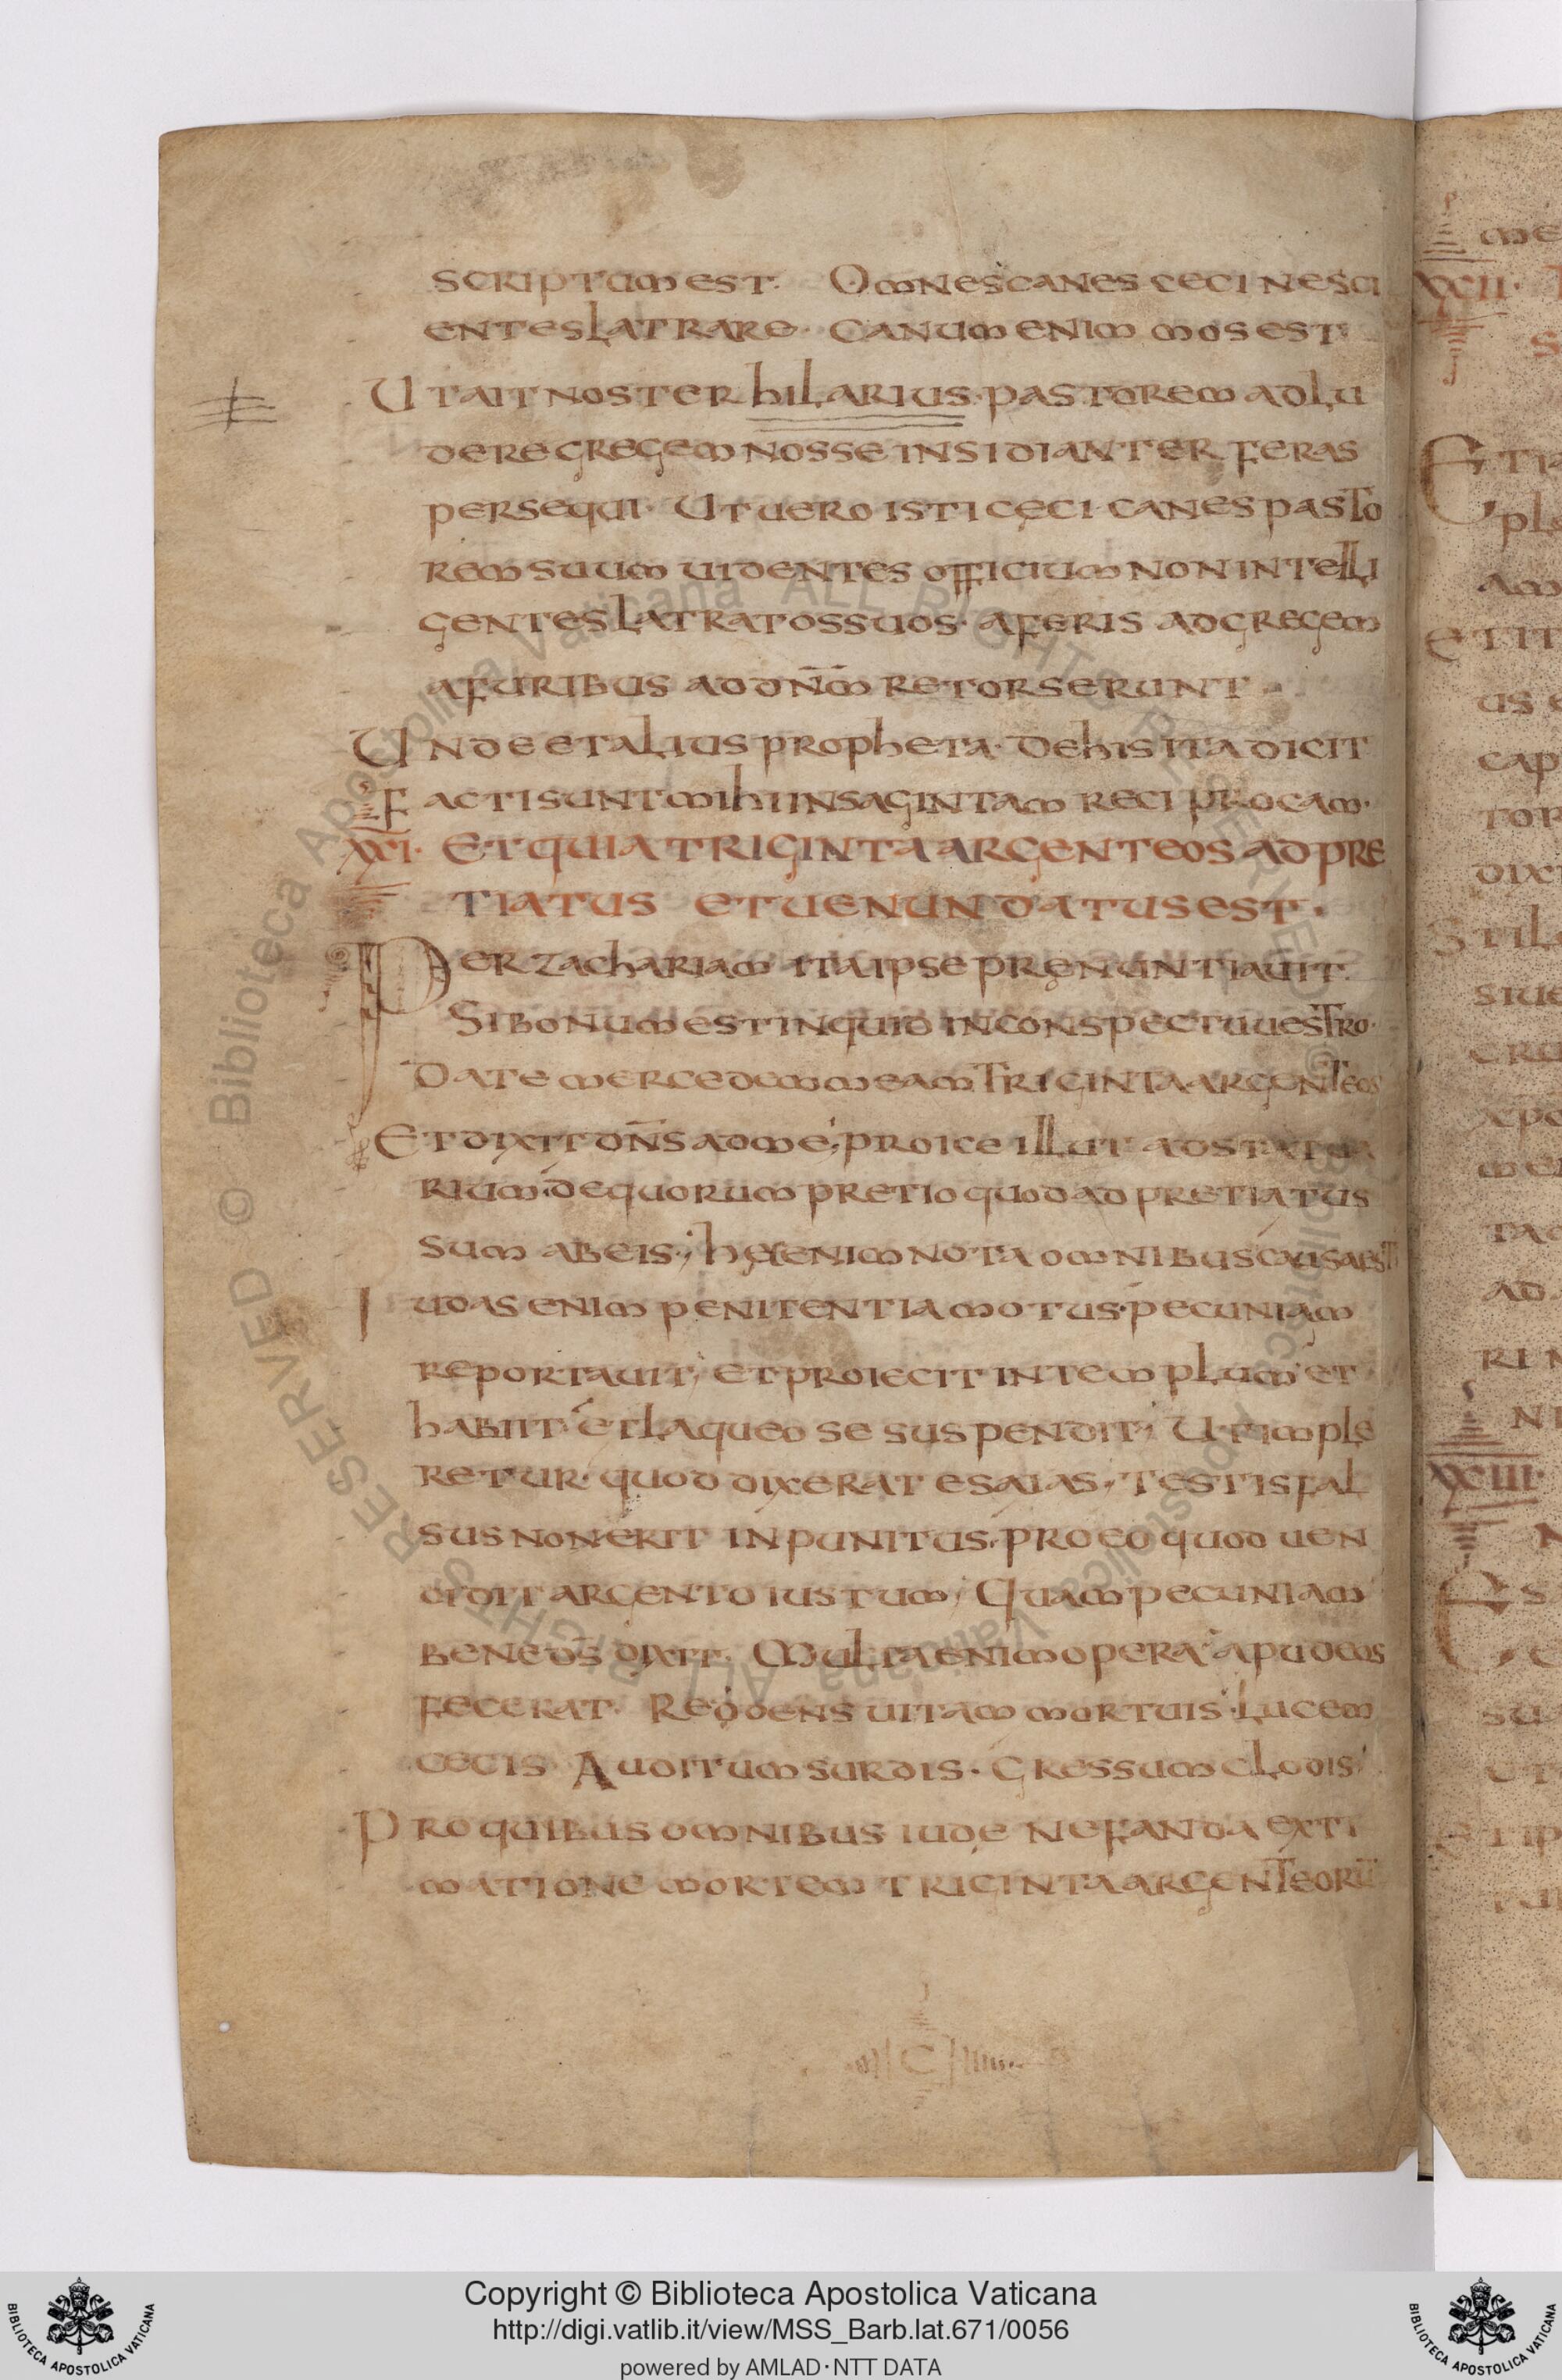 scriptum est. Omnes canes ceci nesci
entes latrare. Canum enim mos est
Ut ait noster hilarius. pastorem adlu
dere gregem nosse insidianter feras
persequi. Ut uero isti cęci canes pasto
rem suum uidentes officium non intelli
gentes latratos suos. a feris ad gregem
a furibus ad dn̄m̄ retorserunt
Unde et alius propheta. De his ita dicit
Facti sunt mihi in sagintam reciprocam.
XXI. Et quia triginta argenteos adpre
tiatus et uenundatus est.
Per zachariam ita ipse pręnuntiauit.
Si bonum est inquid in conspectu uestro.
Date mercedem meam triginta argenteos
Et dixit dn̄s ad me; proice illut ad statua
rium. de quorum pretio quod adpretiatus
sum ab eis; hęc enim nota omnibus causa est
Iudas enim penitentia motus. pecuniam
reportauit; et proiecit in templum et
habiit et laqueo se suspendit; Ut imple
retur. quod dixerat esaias; testis fal
sus non erit inpunitus. pro eo quod uen
didit argento iustum; Quam pecuniam
bene ds̄ dixit. Multa enim opera apud eos
fecerat. Reddens uitam mortuis. lucem
cecis Auditum surdis. Gressum clodis
Pro quibus omnibus iude nefanda exti
matione mortem triginta argenteorū
XXII.
XXIII.
© Biblioteca Apostolica Vaticana ALL RIGHTS RESERVED © Biblioteca Apostolica Vaticana ALL RIGHTS RESERVED
Copyright © Biblioteca Apostolica Vaticana
http://digi.vatlib.it/view/MSS_Barb.lat.671/0056
powered by AMLAD·NTT DATA
BIBLIOTECA APOSTOLICA VATICANA
BIBLIOTECA APOSTOLICA VATICANA